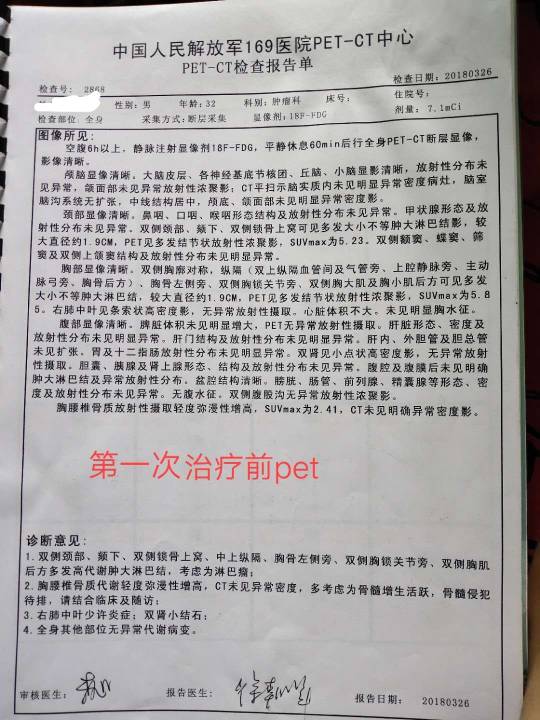 中国人民解放军169医院PET-CT中心
PET-CT检查报告单
检查日期：20180326
检查号： 2868
性别：男 年龄：32 科别：肿瘤科 床号： 住院号：
检查部位 全身 采集方式：断层采集 显像剂：18F-FDG 剂量：7.1mCi
图像所见：
空腹6h以上，静脉注射显像剂18F-FDG，平静休息60min后行全身PET-CT断层显像，
影像清晰。
颅脑显像清晰。大脑皮层、各神经基底节核团、丘脑、小脑显影清晰，放射性分布未
见异常，颌面部未见异常放射性浓聚影；CT平扫示脑实质内未见明显异常密度病灶，脑室
脑沟系统无扩张，中线结构居中，颅底、颌面部未见明显异常密度影。
颈部显像清晰。鼻咽、口咽、喉咽形态结构及放射性分布未见异常。甲状腺形态及放
射性分布未见异常。双侧颈部、颏下、双侧锁骨上窝可见多发大小不等肿大淋巴结影，较
大直径约1.9CM，PET见多发结节状放射性浓聚影，SUVmax为5.23。双侧额窦、蝶窦、筛
窦及双侧上颌窦结构及放射性分布未见明显异常。
胸部显像清晰。双侧胸廓对称，纵隔（双上纵隔血管间及气管旁、上腔静脉旁、主动
脉弓旁、胸骨后方）、胸骨左侧旁、双侧胸锁关节旁、双侧胸大肌及胸小肌后方可见多发
大小不等肿大淋巴结，较大直径约1.9CM，PET见多发结节状放射性浓聚影，SUVmax为5.8
5。右肺中叶见条索状高密度影，无异常放射性摄取。心脏体积不大。未见明显胸水征。
腹部显像清晰。脾脏体积未见明显增大，PET无异常放射性摄取。肝脏形态、密度及
放射性分布未见明显异常。肝门结构及放射性分布未见明显异常。肝内、外胆管及胆总管
未见扩张。胃及十二指肠放射性分布未见明显异常。双肾见小点状高密度影，无异常放射
性摄取。胆囊、胰腺及肾上腺形态、结构及放射性分布未见异常。腹腔及腹膜后未见明确
肿大淋巴结及异常放射性分布。盆腔结构清晰。膀胱、肠管、前列腺、精囊腺等形态、密
度及放射性分布未见异常。无腹水征。双侧腹股沟无异常放射性浓聚影。
胸腰椎骨质放射性摄取轻度弥漫性增高，SUVmax为2.41，CT未见明确异常密度影。
第一次治疗前pet
诊断意见：
1.双侧颈部、颏下、双侧锁骨上窝、中上纵隔、胸骨左侧旁、双侧胸锁关节旁、双侧胸肌
后方多发高代谢肿大淋巴结，考虑为淋巴瘤；
2.胸腰椎骨质代谢轻度弥漫性增高，CT未见异常密度，多考虑为骨髓增生活跃，骨髓侵犯
待排，请结合临床及随访；
3.右肺中叶少许炎症；双肾小结石；
4.全身其他部位无异常代谢病变。
审核医生： 报告医生： 报告日期： 20180326